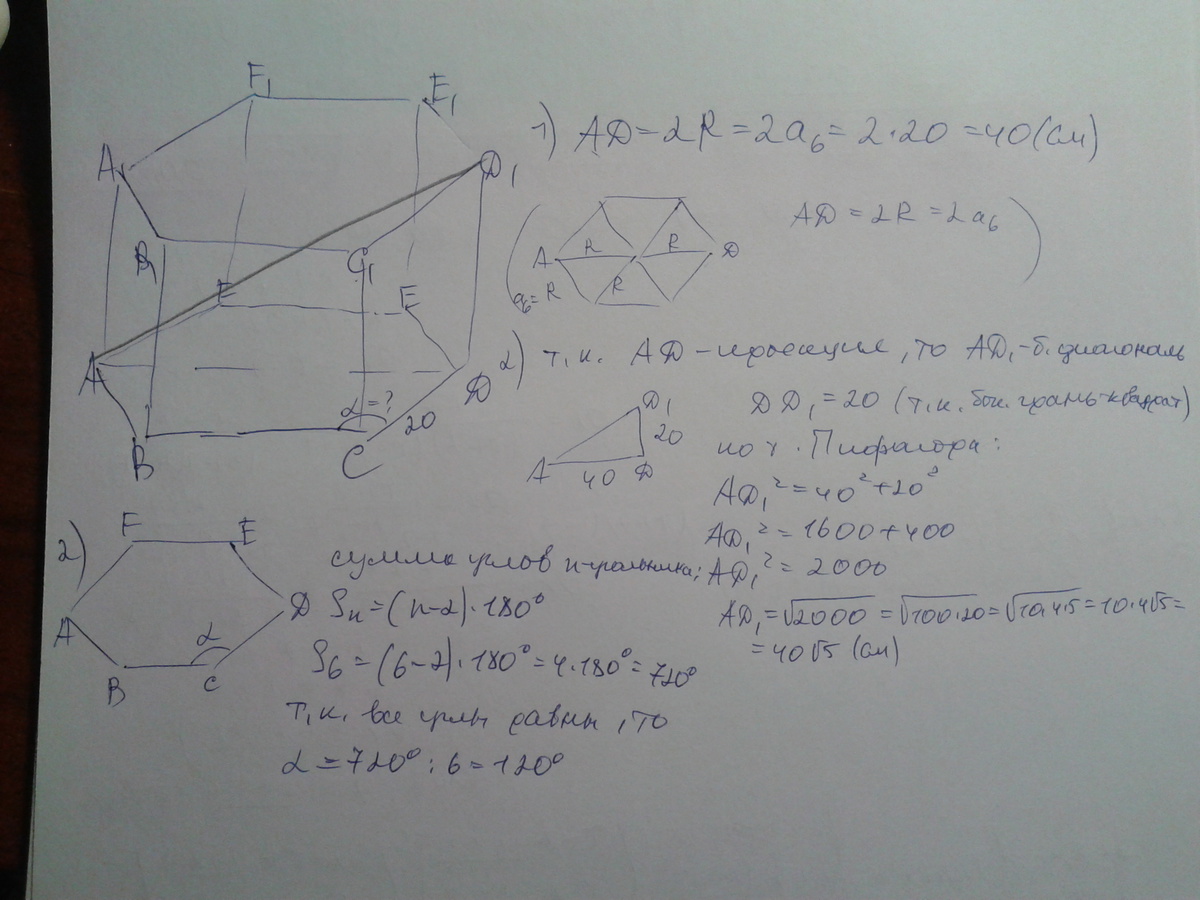 F₁
E₁
A₁
D₁
B₁
C₁
F
E
A
D
B
C
α=?
20
1) AD = 2R = 2a₆ = 2·20 = 40 (см)
A R R D
a₆=R R
AD = 2R = 2a₆
2) т.к. AD – проекция, то AD₁ – б. диагональ
D₁
20
A 40 D
DD₁ = 20 (т.к. бок. грань – квадрат)
по т. Пифагора:
AD₁² = 40² + 20²
AD₁² = 1600 + 400
AD₁² = 2000
AD₁ = √2000 = √100·20 = √10·4·5 = 10·4√5 =
= 40√5 (см)
2)
F E
A D
B C
α
сумма углов n-угольника:
Sₙ = (n-2)·180°
S₆ = (6-2)·180° = 4·180° = 720°
т.к. все углы равны, то
α = 720° : 6 = 120°